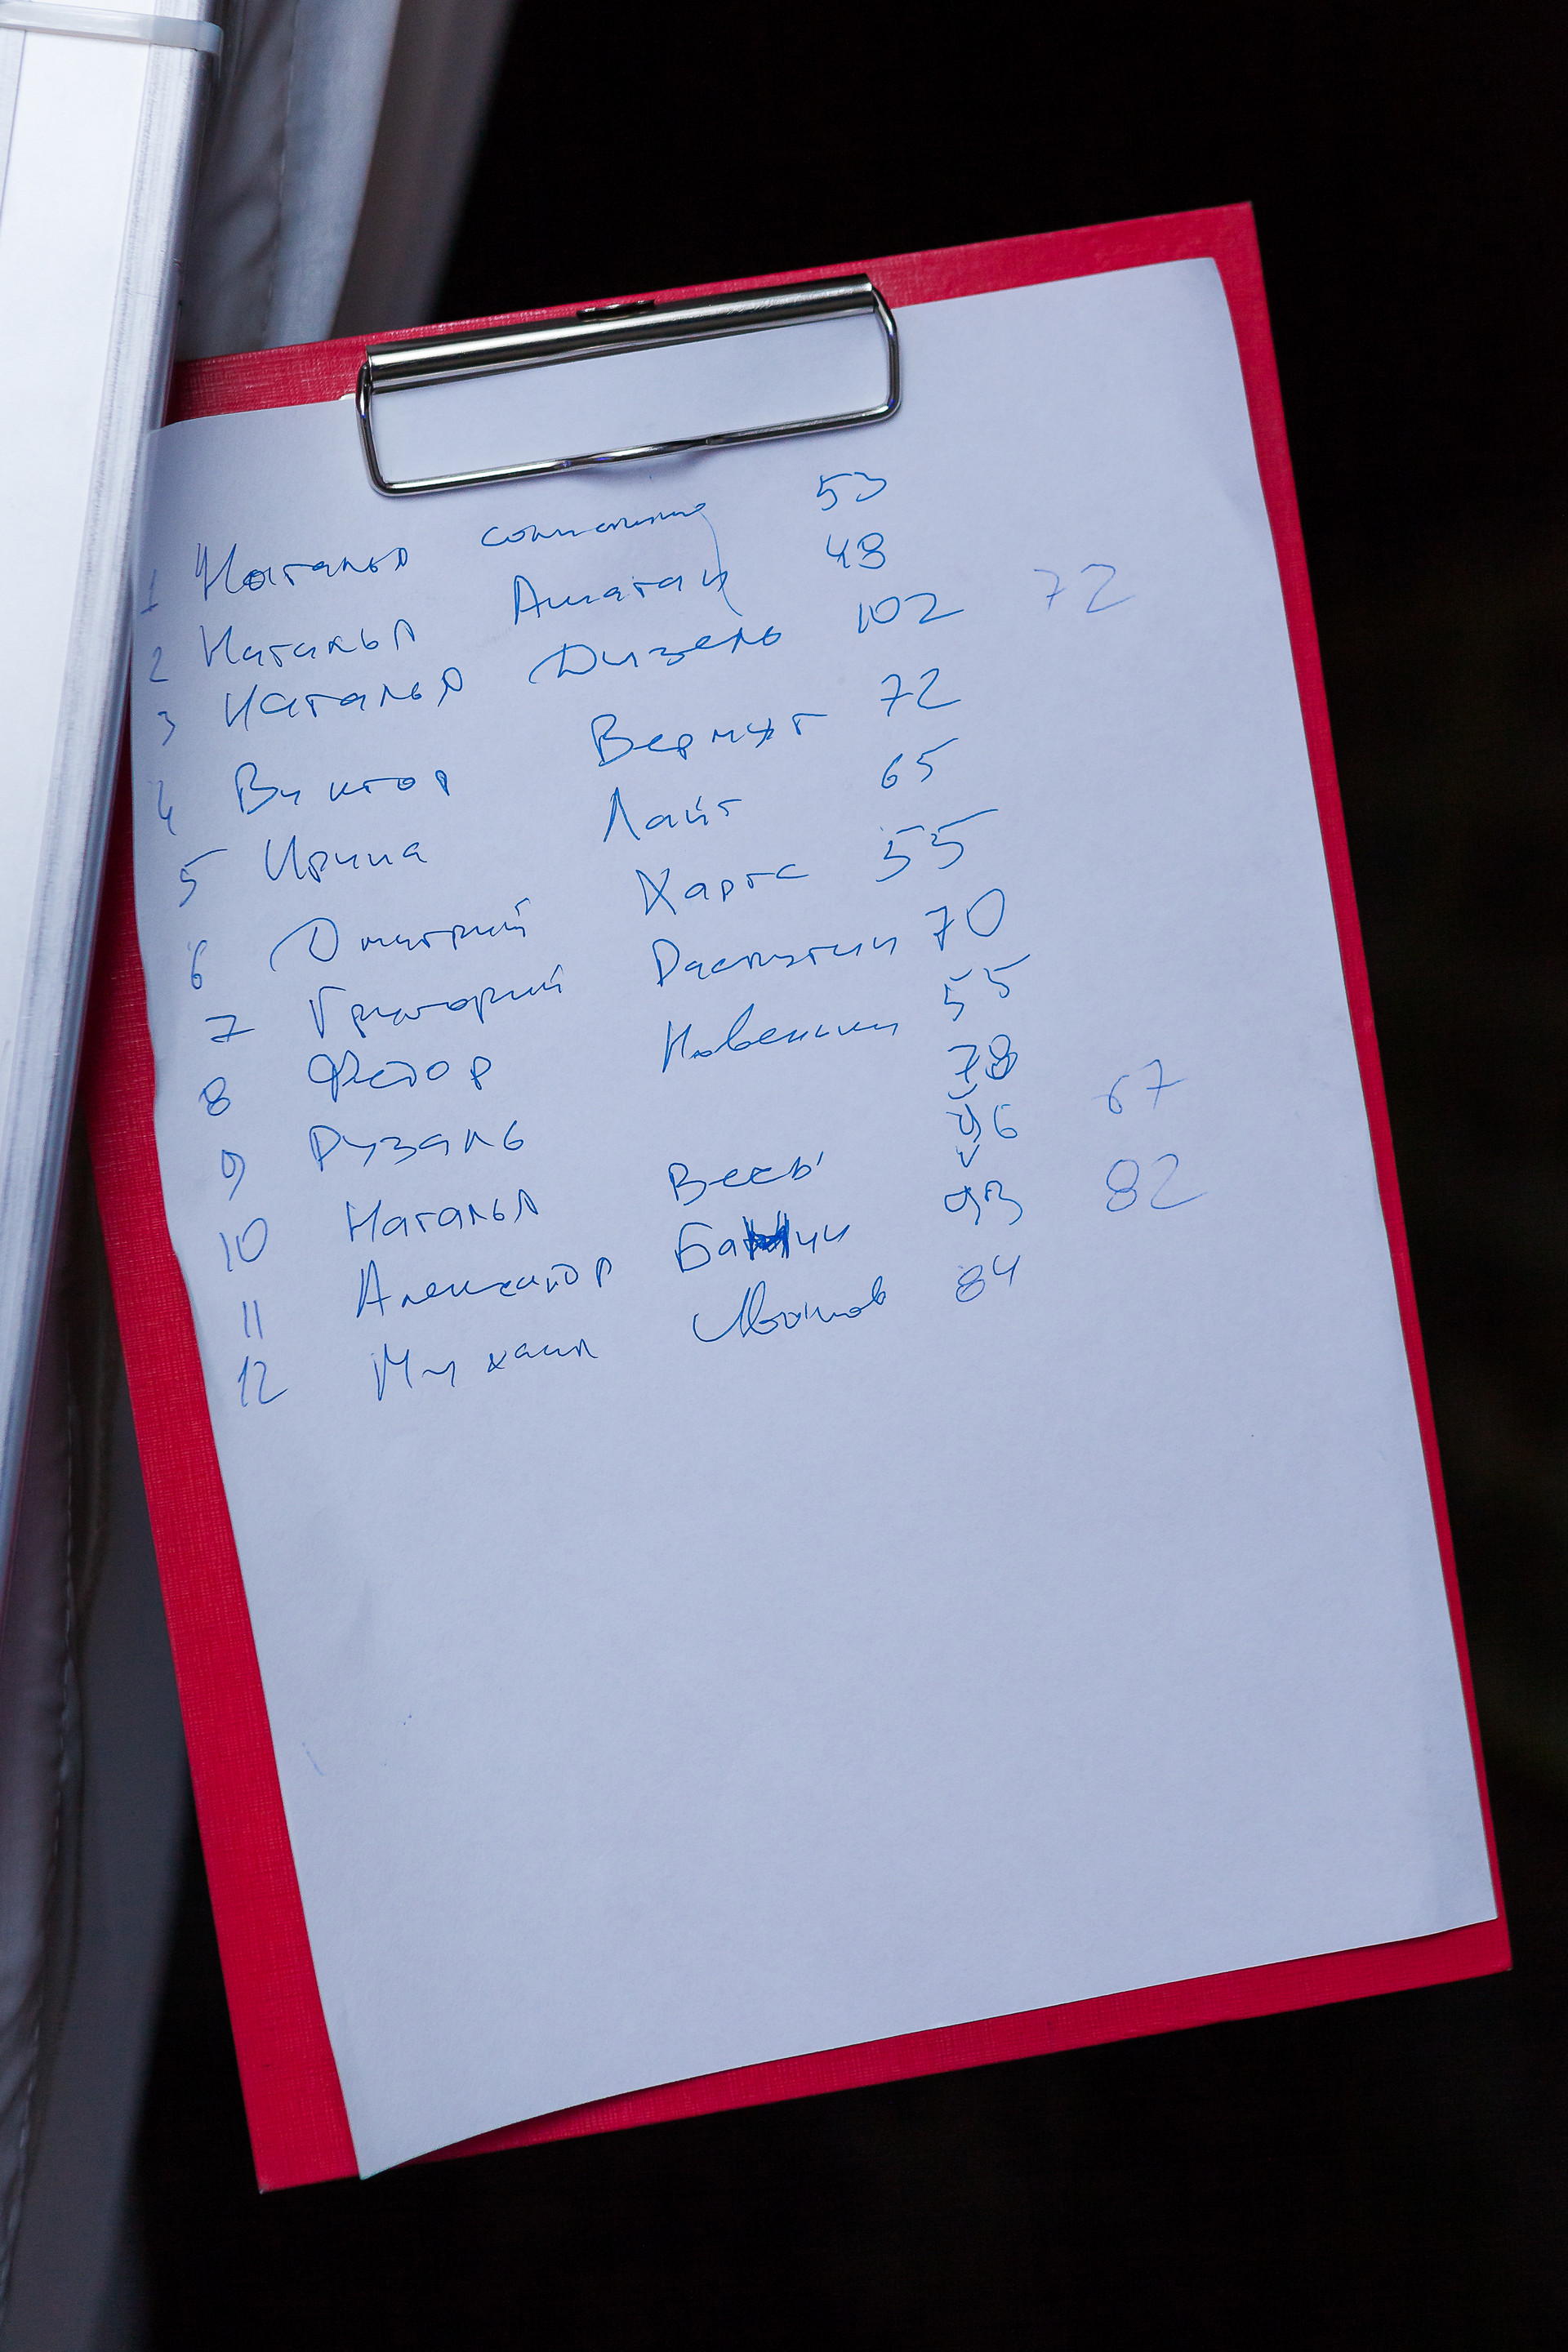 1 Наталья 53
2 Наталья Аматаи 48
3 Наталья Дизель 102 72
4 Виктор Вермут 72
5 Ирина Лайт 65
6 Дмитрий Хартс 55
7 Григорий Распутин 70
8 Федор 55
9 Рузаль 78
10 Наталья Весы 96 67
11 Александр 93 82
12 Михаил 84